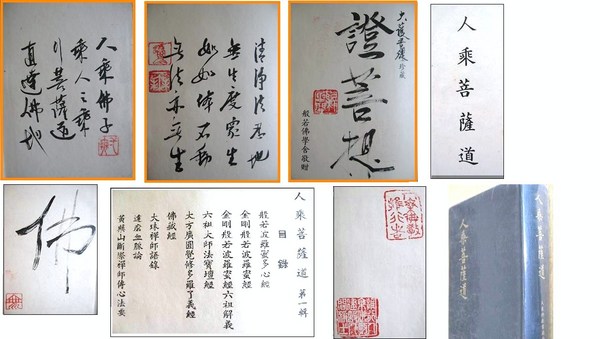 人乘佛子
乘人之乘
行菩薩道
直達佛地
清淨法
無生度眾生
如如石動
無法亦無生
珍藏
證菩提
般若佛學會敬贈
人乘菩薩道
佛
人乘菩薩道 第一輯
目錄
般若波羅蜜多心經
金剛般若波羅蜜經
金剛般若波羅蜜經六祖解義
六祖大師法寶壇經
大方廣圓覺修多羅了義經
佛藏經
大珠禪師語錄
達磨血脈論
黃蘗山斷際禪師傳心法要
人乘菩薩道
人乘菩薩道